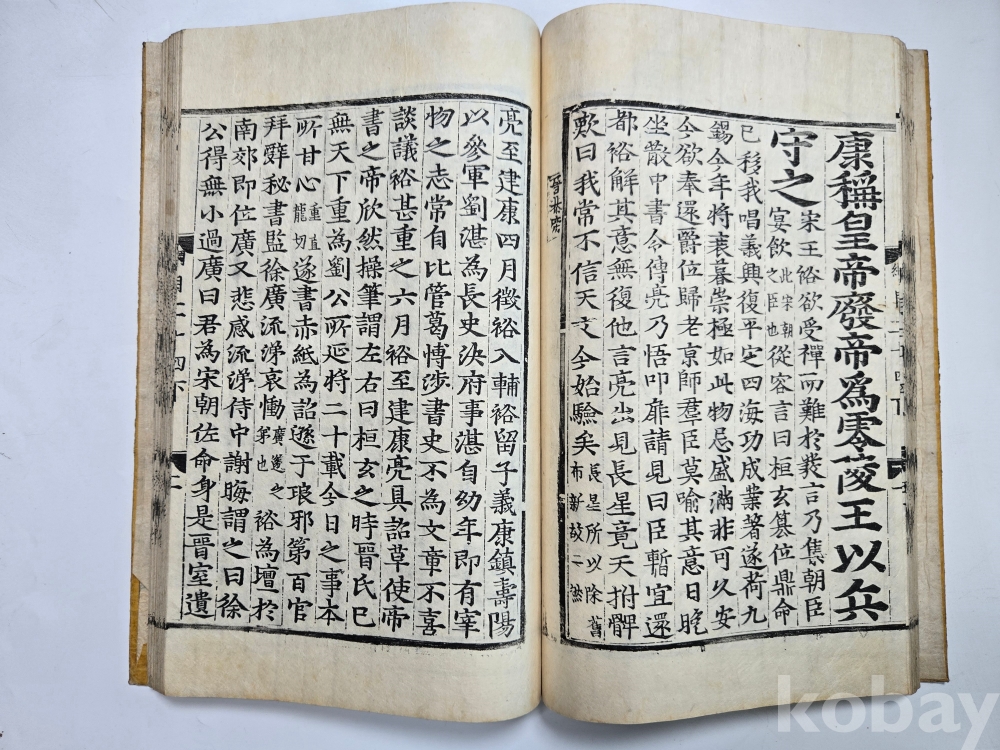 康稱皇帝廢帝爲零陵王以兵
守之
宋王裕欲受禪而難於發言乃集朝臣
宴飲此宋朝之臣也從容言曰桓玄簒位鼎命
已移我唱義興復平定四海功成業著遂荷九
錫今年將衰暮崇極如此物忌盛滿非可久安
今欲奉還爵位歸老京師羣臣莫喻其意日晚
坐散中書令傳亮乃悟叩扉請見曰臣暫宜還
都裕解其意無復他言亮出見長星竟天拊髀
歎曰我常不信天文今始驗矣長星所以除舊布新故云然
晉恭帝
亮至建康四月徵裕入輔裕留子義康鎮壽陽
以參軍劉湛為長史決府事湛自幼年即有宰
物之志常自比管葛博涉書史不為文章不喜
談議裕甚重之六月裕至建康亮具詔草使帝
書之帝欣然操筆謂左右曰桓玄之時晉氏已
無天下重為劉公所延將二十載今日之事本
所甘心重直龍切遂書赤紙為詔遜于琅邪第百官
拜辭秘書監徐廣流涕哀慟廣邈之弟也裕為壇於
南郊即位廣又悲感流涕侍中謝晦謂之曰徐
公得無小過廣曰君為宋朝佐命身是晉室遺
目二十四下
二
kobay